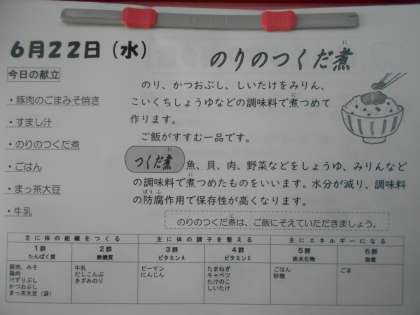 6月22日(水)
のりのつくだ煮
今日の献立
・豚肉のごまみそ焼き
・すまし汁
・のりのつくだ煮
・ごはん
・まっ茶大豆
・牛乳
のり、かつおぶし、しいたけをみりん、
こいくちしょうゆなどの調味料で煮つめて
作ります。
ご飯がすすむ一品です。
つくだ煮 魚、貝、肉、野菜などをしょうゆ、みりんなど
の調味料で煮つめたものをいいます。水分が減り、調味料
の防腐作用で保存性が高くなります。
のりのつくだ煮は、ご飯にそえていただきましょう。
主に体の組織をつくる 主に体の調子を整える 主にエネルギーになる
1群 2群 3群 4群 5群 6群
たんぱく質 無機質 ビタミンA ビタミンC 炭水化物 脂質
豚肉、みそ 牛乳 ピーマン たまねぎ ごはん ごま
鶏肉 だしこんぶ にんじん キャベツ 砂糖
けずりぶし きざみのり たけのこ
かつおぶし しいたけ
まっ茶大豆(袋)